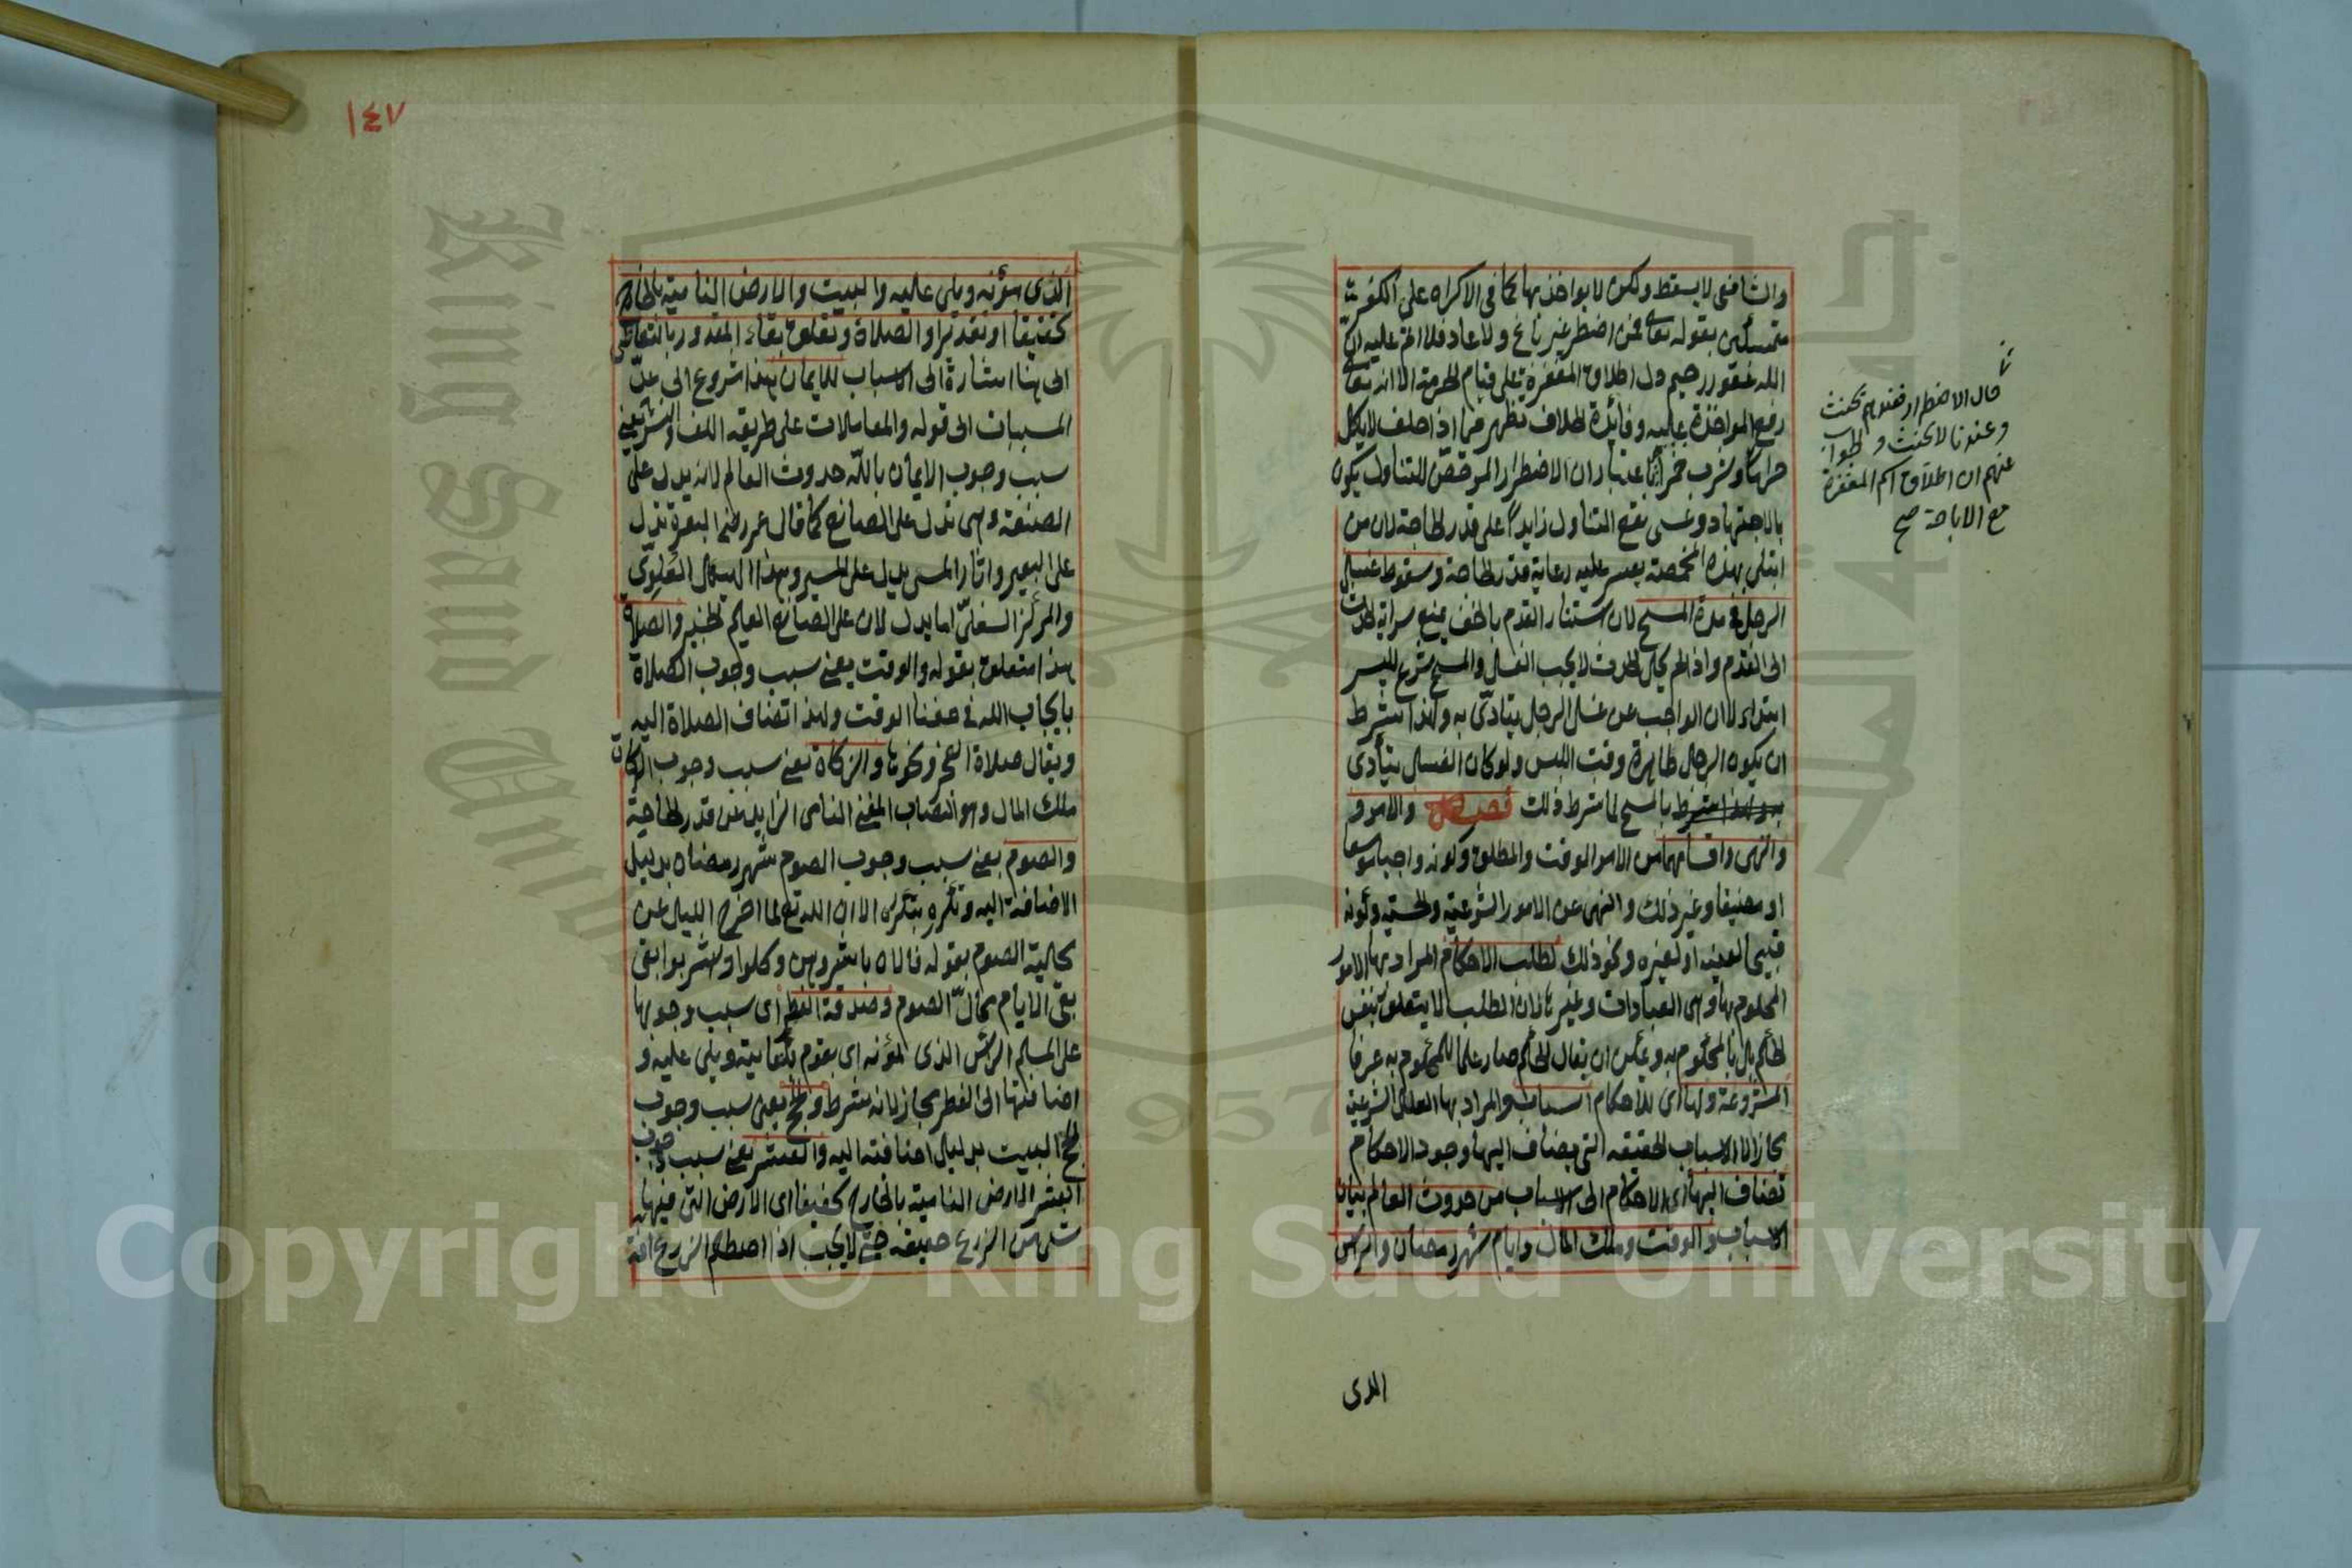 والشافعي لا يسقط ولكن لا يواخذ بها كما في الاكراه على الكفر
متمسكين بقوله تعالى فمن اضطر غير باغ ولا عاد فلا اثم عليه ان
الله غفور رحيم دل اطلاق المغفرة على قيام الحرمة الا انه تعالى
رفع المواخذة عليه وفائدة الخلاف تظهر فيما اذا حلف لا ياكل
حراما او شرب خمرا باعتبار ان الاضطرار المرخص للتناول يكون
بالاجتهاد وعسى يقع التناول زايدا على قدر الحاجة لان من
ابتلى بهذه المخمصة يعسر عليه رعاية قدر الحاجة وسقوط غسل
الرجل في مدة المسح لان استتار القدم بالخف يمنع سراية الحدث
الى القدم واذا لم يحل الحدث لا يجب الغسل والمسح شرع لليسر
ابتداء لا ان الواجب عن غسل الرجل يتادى به ولهذا يشترط
ان يكون الرجل طاهرة وقت اللبس ولو كان الغسل يتأدى
بالمسح لما شرط ذلك فصل والامر و
والنهي واقسامهما من الامر الموقت والمطلق وكونه واجبا موسعا
او مضيقا وغير ذلك والنهي عن الامور الشرعية والحسية وكونه
قبيحا لعينه او لغيره ونحو ذلك لطلب الاحكام المراد بها الامور
المحكوم بها وهي العبادات وغيرها لان الطلب لا يتعلق بنفس
الحكم بل بالمحكوم به ويمكن ان يقال الحكم صار علما للمحكوم به عرفا
المشروعة ولها اى للاحكام اسباب والمراد بها العلل الشرعية
مجازا لا الاسباب الحقيقة التي يضاف اليها وجود الاحكام
تضاف اليها اى الاحكام الى الاسباب من حدوث العالم بيان
الاسباب والوقت وملك المال وايام شهر رمضان والراس
الذى
قال الاضطرار فعندهم يحنث
وعندنا لا يحنث والجواب
عنهم ان اطلاق اسم المغفرة
مع الاباحة صح
١٤٧
الذى يمؤنه ويلى عليه والبيت والارض النامية بالخارج
تحقيقا او تقديرا والصلاة وتعلق بقاء المقدور بالتعاطى
الى هنا اشارة الى الاسباب للايمان هذا شروع الى عد
المسببات الى قوله والمعاملات على طريقة اللف والنشر يعنى
سبب وجوب الايمان بالله حدوث العالم لانه يدل على
الصنعة وهى تدل على الصانع كما قال عمر رضه البعرة تدل
على البعير واثار المشى يدل على المسير وهذا الهيكل العلوى
والمركز السفلى اما يدلان على الصانع العليم الخبير والصلاة
هذا متعلق بقوله والوقت يعنى سبب وجوب الصلاة
بايجاب الله في حقنا الوقت ولهذا تضاف الصلاة اليه
ويقال صلاة الفجر ونحوها والزكاة يعنى سبب وجوب الزكاة
ملك المال وهو النصاب المغنى النامى الزايد عن قدر الحاجة
والصوم يعنى سبب وجوب الصوم شهر رمضان بدليل
الاضافة اليه وتكرره بتكرره الا ان الله تع لما اخرج الليل عن
محلية الصوم بقوله فالان باشروهن وكلوا واشربوا بقى
بقى الايام محال الصوم وصدقة الفطر اى سبب وجوبها
على المسلم الراس الذى يمؤنه اى يقوم بكفايته ويلى عليه و
اضافتها الى الفطر مجاز لانه شرط والحج يعنى سبب وجوب
الحج البيت بدليل اضافته اليه والعشر يعنى سبب وجوب
العشر الارض النامية بالخارج تحقيقا اى الارض التى فيها
شئ من الزرع حقيقة حتى لا يجب اذا اصطلم الزرع افة
Copyright © King Saud University
King Saud University
1957